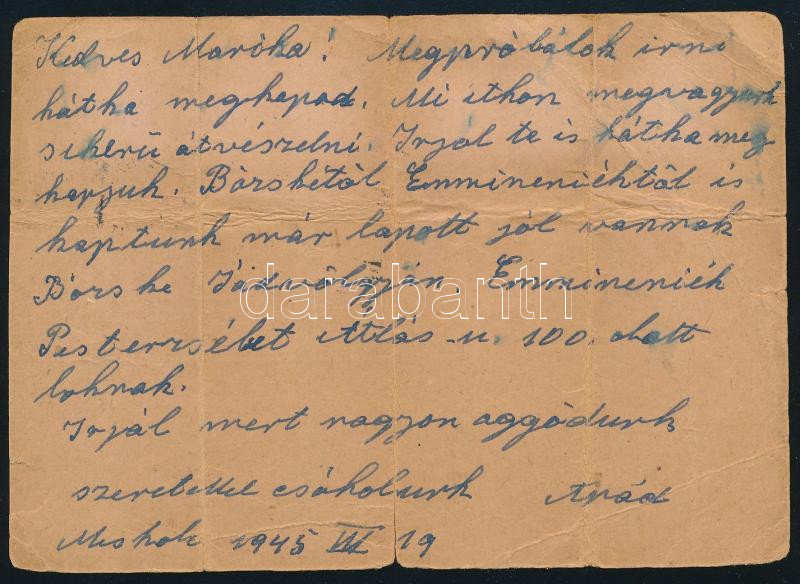 Kedves Marika! Megpróbálok irni
hátha megkapod. Mi ithon megvagyunk
sikerü átvészelni. Irjál te is hátha meg
kapjuk. Börskétöl, Emmineniéktöl is
kaptunk már lapott jól vannak
Börske Jádvölgyén. Emmineniék
Pesterzsébet Atlás u. 100. alatt
laknak.
Irjál mert nagyon aggódunk
szeretettel csókolunk Arpád
Miskolc 1945 III 19
darabanth